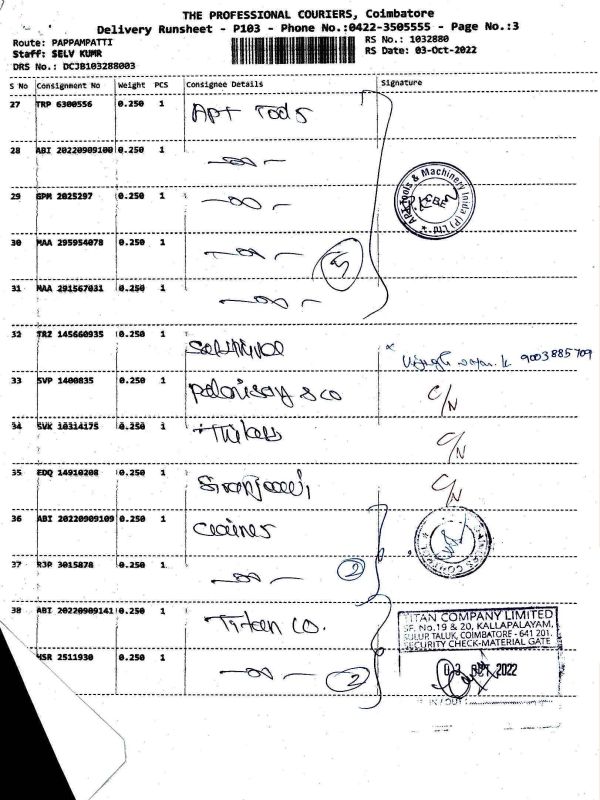 THE PROFESSIONAL COURIERS, Coimbatore
Delivery Runsheet - P103 - Phone No.:0422-3505555 - Page No.:3
Route: PAPPAMPATTI
RS No.: 1032880
Staff: SELV KUMR
RS Date: 03-Oct-2022
DRS No.: DCJB103288003
S No Consignment No Weight PCS Consignee Details Signature
27 TRP 6300556 0.250 1 APT Tools
28 ABI 20220909100 0.250 1
29 GPM 2025297 0.250 1
APT Tools & Machinery India (P) Ltd CBE
30 MAA 295954078 0.250 1
5
31 MAA 291567031 0.250 1
32 TRZ 145660935 0.250 1 9003885709
33 SVP 1400835 0.250 1 & co C/N
34 SVK 10314175 0.250 1 C/N
35 EDQ 14910208 0.250 1 C/N
36 ABI 20220909109 0.250 1
37 RJP 3015878 0.250 1 2
38 ABI 20220909141 0.250 1 Titan co.
TITAN COMPANY LIMITED
SF. No.19 & 20, KALLAPALAYAM,
SULUR TALUK, COIMBATORE - 641 201.
SECURITY CHECK-MATERIAL GATE
HSR 2511930 0.250 1 2
03 OCT 2022
IN / OUT